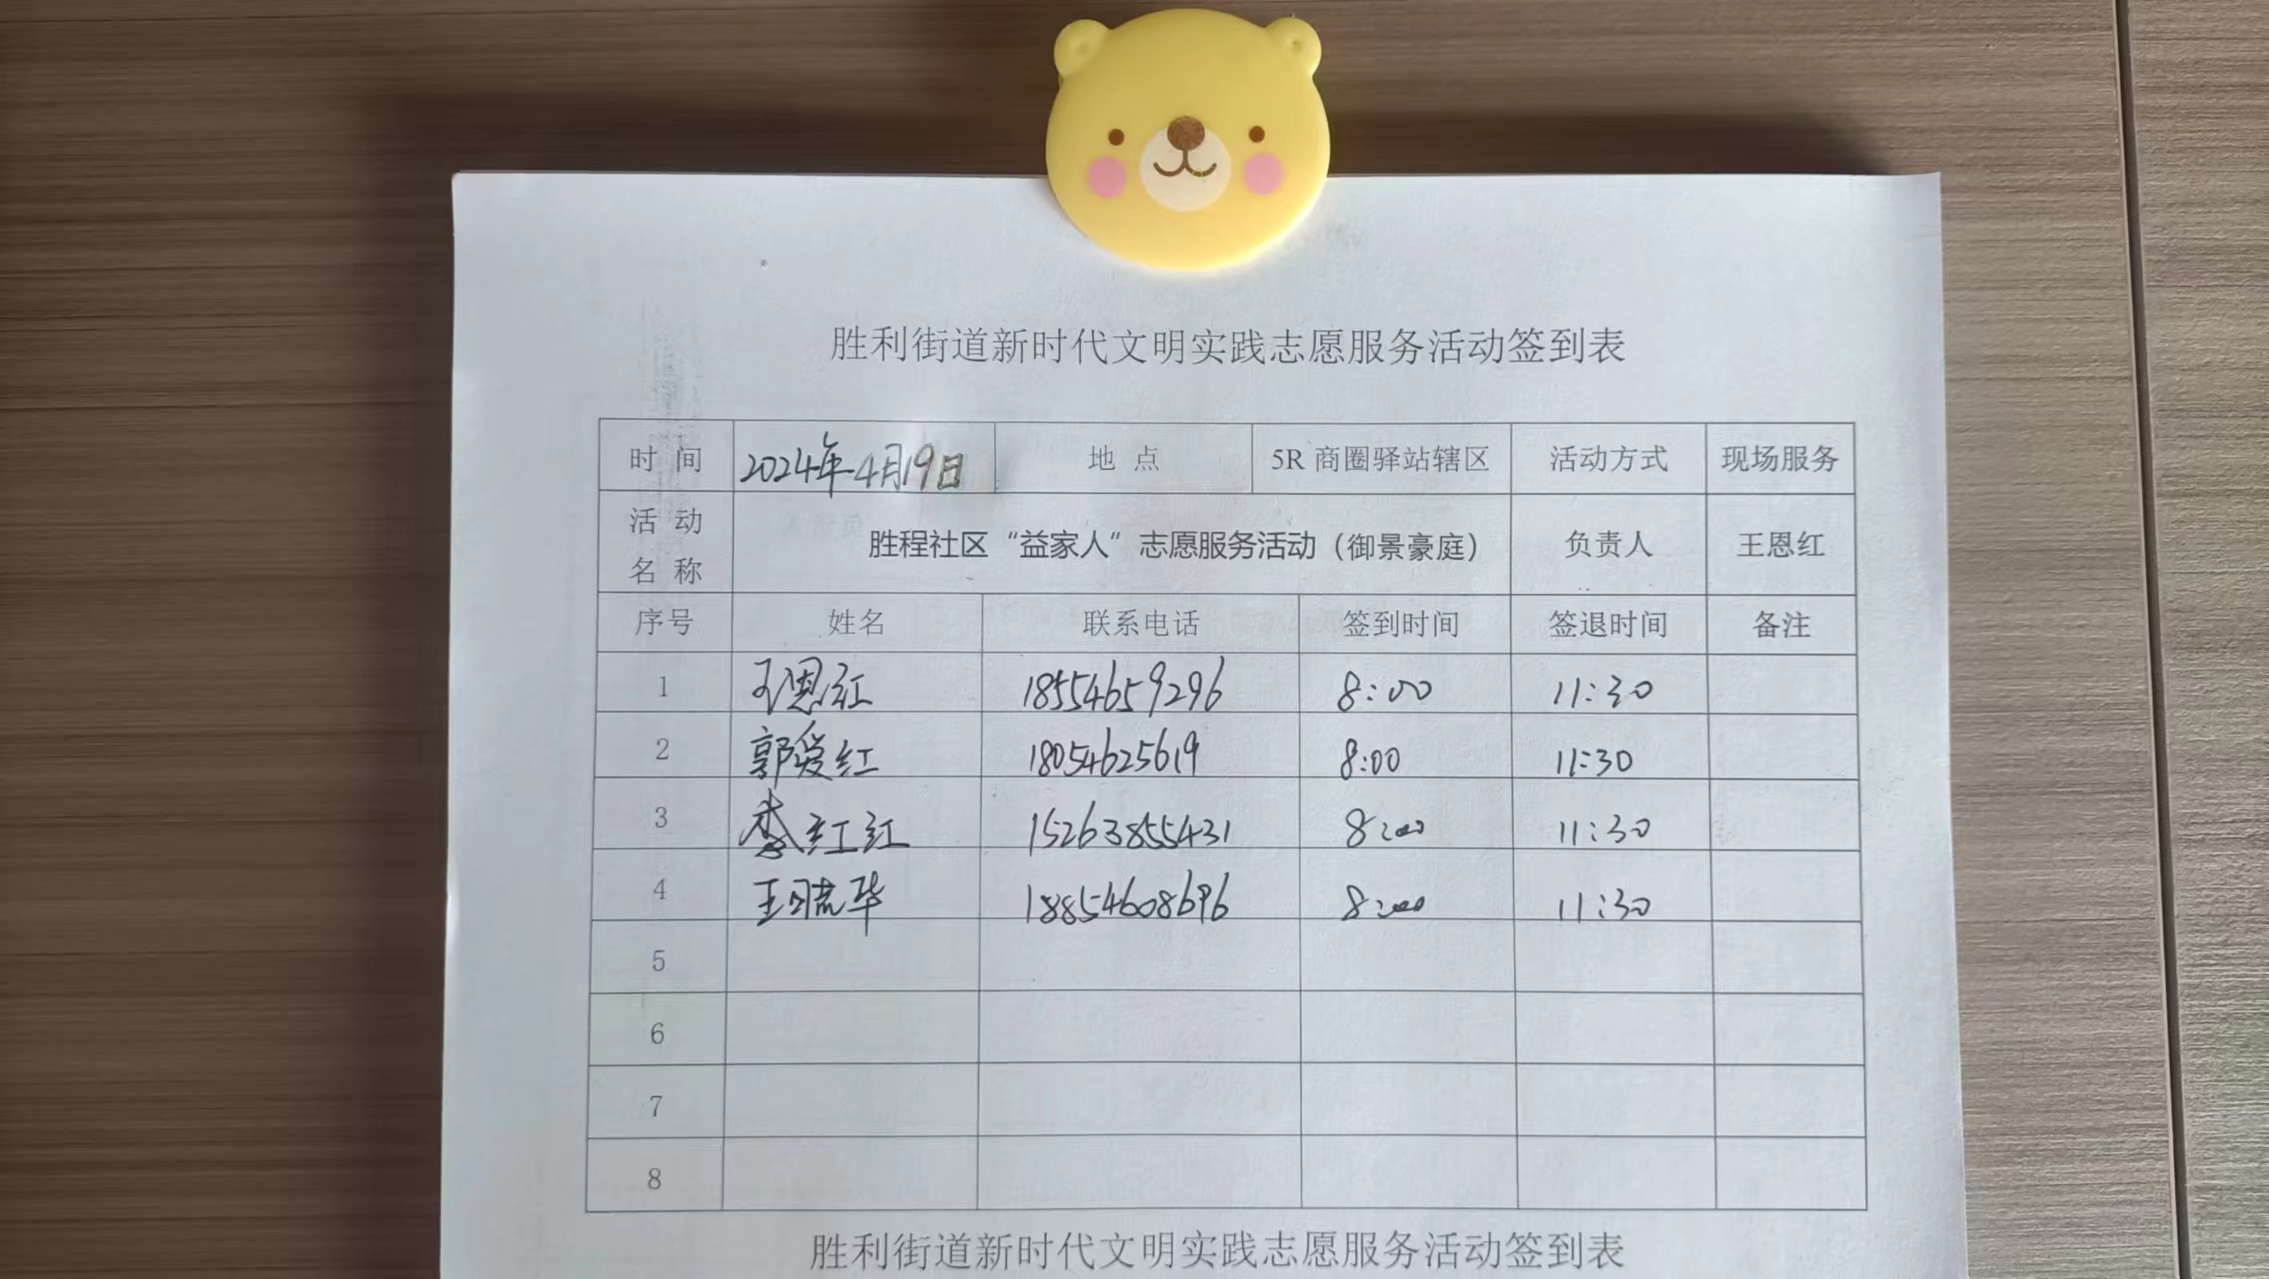 胜利街道新时代文明实践志愿服务活动签到表
时 间 2024年4月19日 地 点 5R 商圈驿站辖区 活动方式 现场服务
活 动 名 称 胜程社区“益家人”志愿服务活动（御景豪庭） 负责人 王恩红
序号 姓名 联系电话 签到时间 签退时间 备注
1 王恩红 18554659296 8:00 11:30
2 郭爱红 18054625619 8:00 11:30
3 李红红 15263855431 8:00 11:30
4 王晓华 18854608696 8:00 11:30
5
6
7
8
胜利街道新时代文明实践志愿服务活动签到表